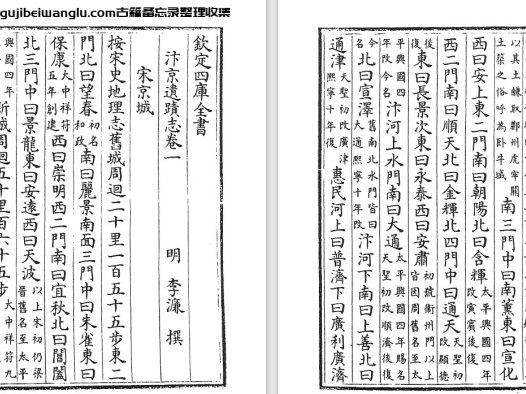 gujibeiwanglu.com古籍备忘录整理收集
欽定四庫全書
汴京遺蹟志卷一
明 李濂 撰
宋京城
按宋史地理志舊城周迴二十里一百五十五步東二
門北曰望春初名和政南曰麗景南面三門中曰朱雀東曰
保康大中祥符五年創建西曰崇明西二門南曰宜秋北曰閶闔
北三門中曰景龍東曰安遠西曰天波以上宋初仍梁晉舊名至太平
興國四年新城周迴五十里百六十五步大中祥符九
以其土練取鄭州虎牢關土築之俗呼為卧牛城南三門中曰南薰東曰宣化
西曰安上東二門南曰朝陽北曰含輝太平興國四年改寅賓後復
西二門南曰順天北曰金輝北四門中曰通天天聖初改顯德
後復東曰長景次東曰永泰西曰安肅初號衛州門以上皆因周舊名至太
平興國四年改今名汴河上水門南曰大通太平興國四年賜名天聖初改順濟後復
今名北曰宣澤舊南北水門皆曰大通熙寧十年改汴河下南曰上善北曰
通津天聖初改廣津熙寧十年復惠民河上曰普濟下曰廣利廣濟